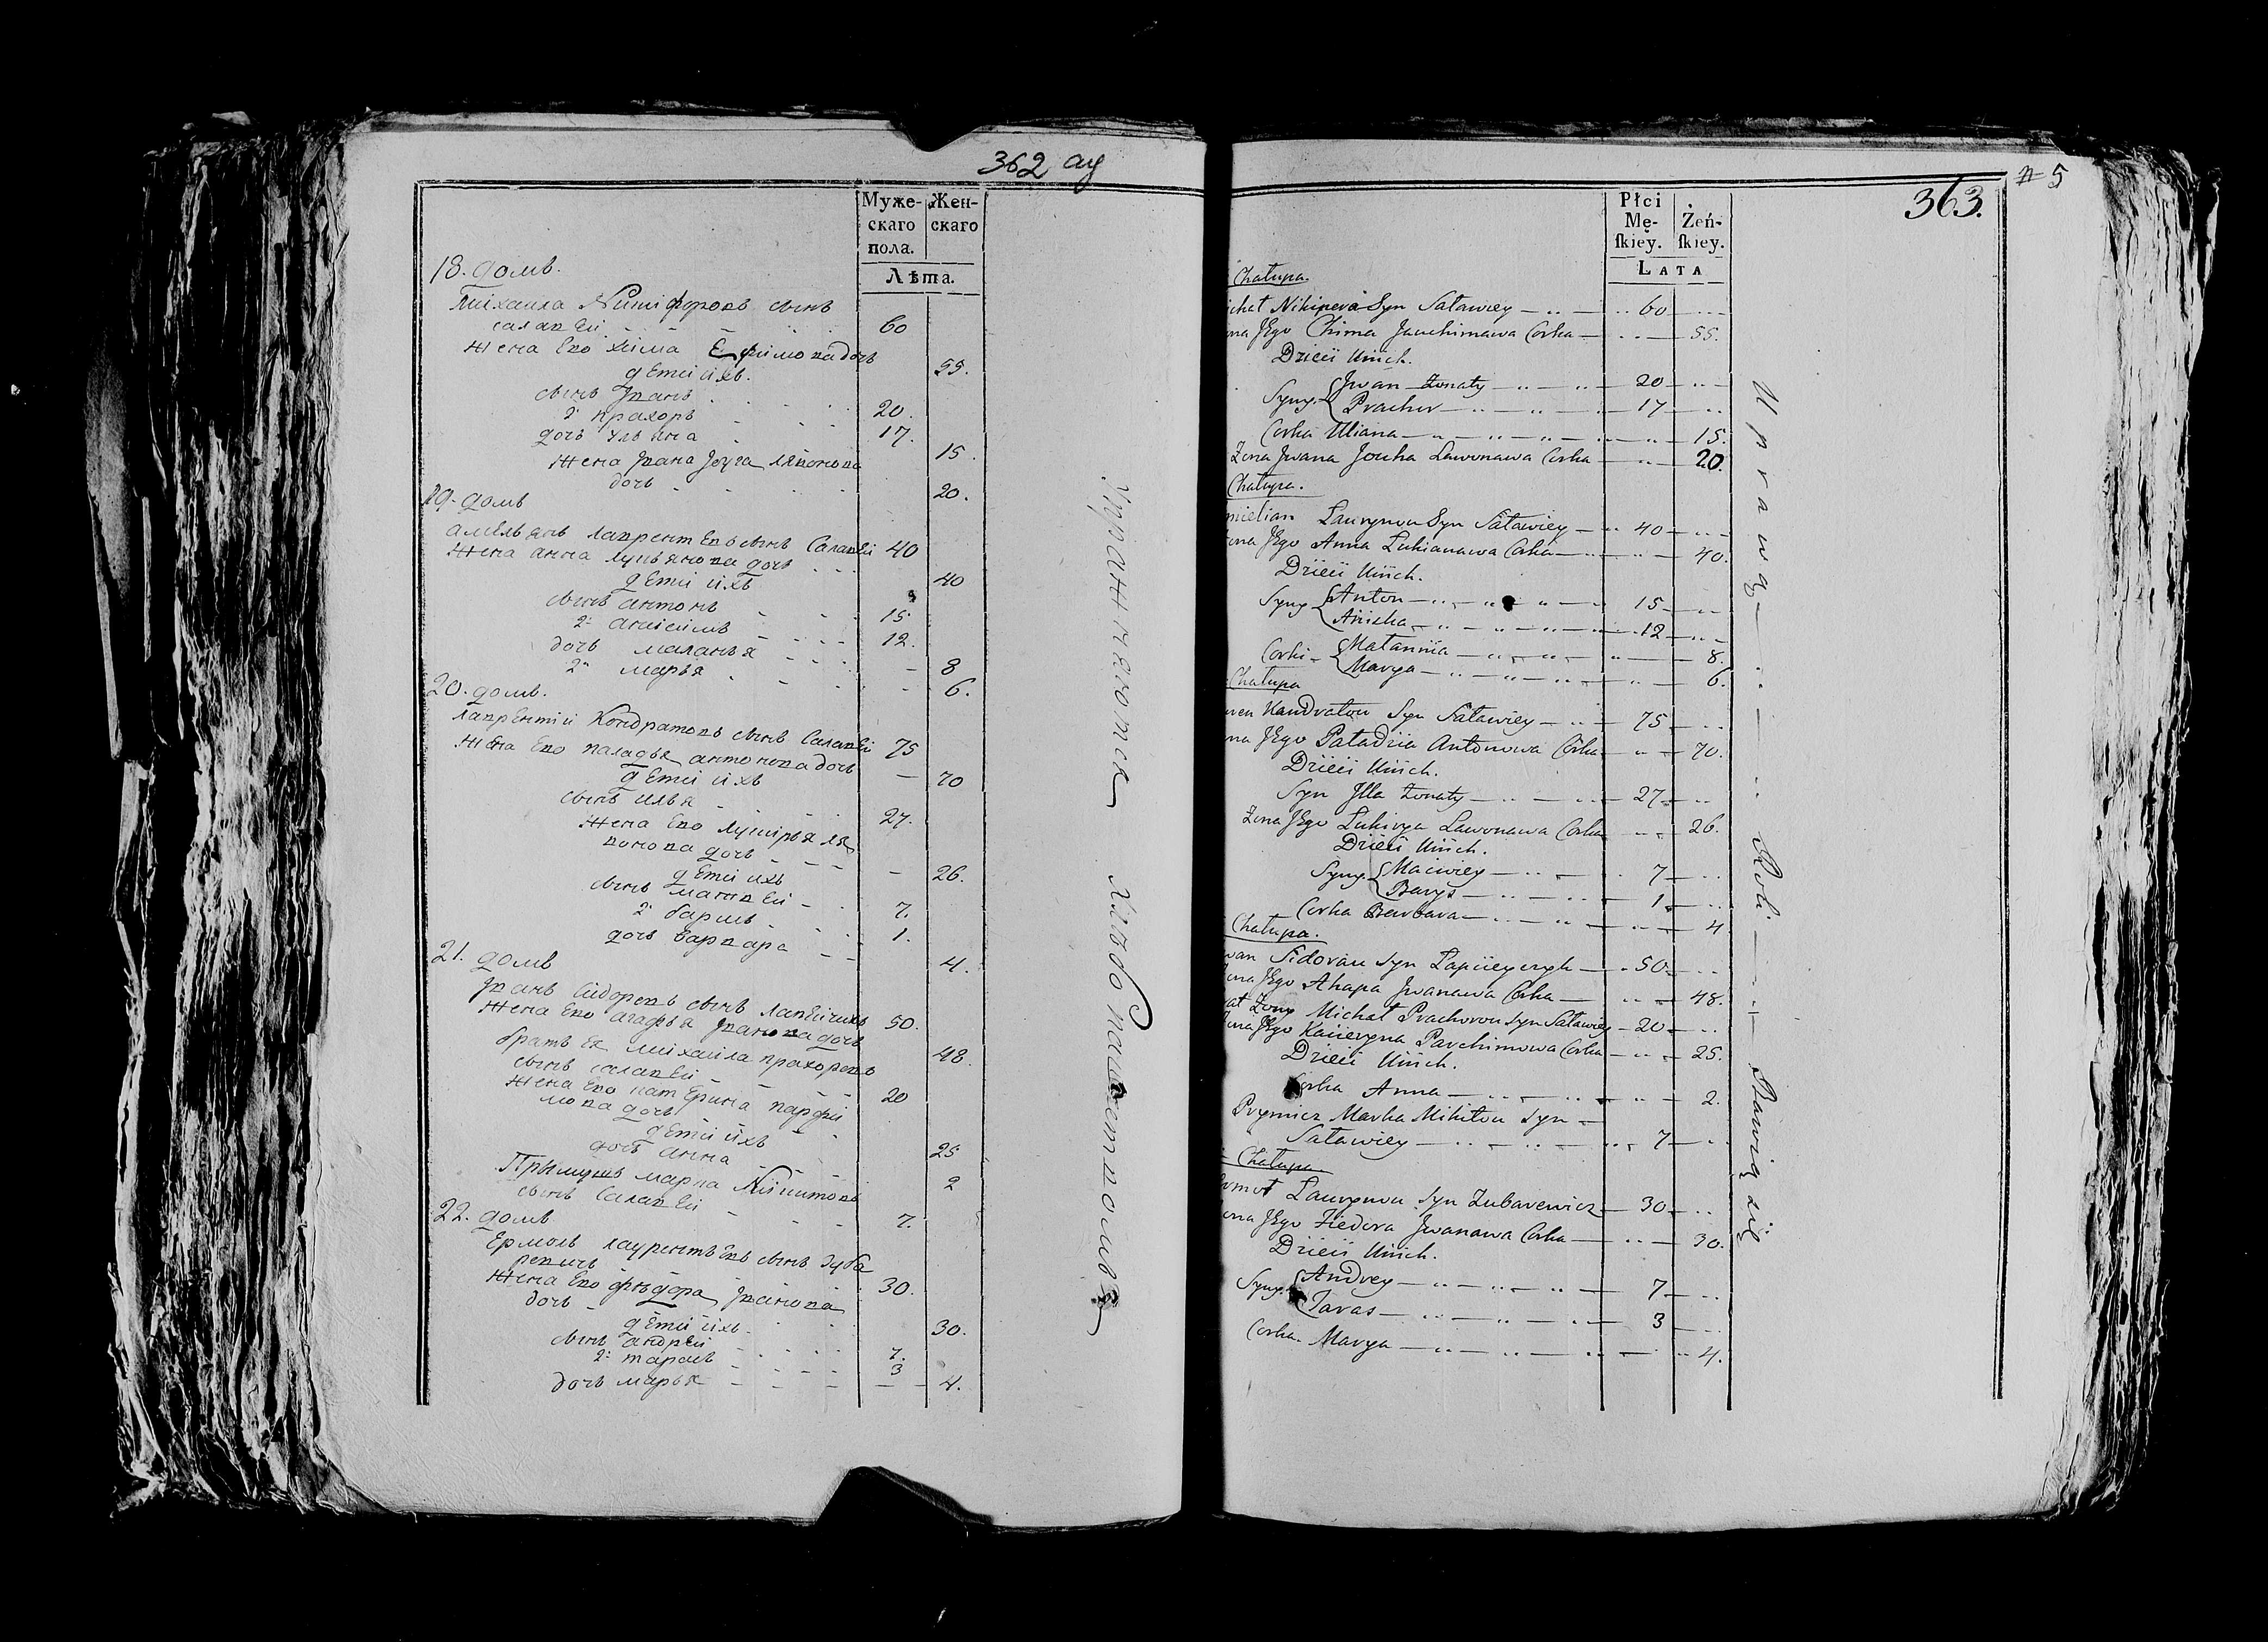 362 ад
Муже-
скаго
пола.
Жен-
скаго
Лѣта.
18. домъ.
Михаила Никифоровъ сынъ
салавеи 60
жена Ево хима Ефимова дочь
дети ихъ. 55.
сынъ Іванъ 20.
2й прахоръ 17.
дочь ульяна 15.
жена Івана Іоуга ляво­нова
дочь 20.
19. домъ
амельянъ лаврентьевъ сынъ Салавеи 40
жена анна лукьянова дочь
дети ихъ 40
сынъ антонъ 15
2й анисимъ 12.
дочь маланья 8
2я марья 6.
20. домъ.
лаврентіи Кондратовъ сынъ Салавеи 75
жена Ево паладья антонова дочь
дети ихъ 70
сынъ илья 27.
жена Ево лукирья ля
вонова дочь
дети ихъ 26.
сынъ матвеи 7.
2й барысъ 1.
дочь варвара 4.
21. домъ
Іванъ Сидоровъ сынъ лапеичикъ 50.
жена Ево агафья Іванова дочь
братъ ея михаила прахоровъ 48.
сынъ салавеи 20
жена Ево катерина парфи
мова дочь
дети ихъ 25
дочь анна 2
Прымутъ марка Никитовъ
сынъ Салавеи 7.
22. домъ
Ермолъ лаурентьевъ сынъ зуба
ревичъ 30.
жена Ево фѣдора Іванова
дочь
дети ихъ. 30.
сынъ андреи 7.
2й тарасъ 3
дочь марья 4.
Упражняются хлебопашествомъ
# 5
363.
Płci
Mę-
ſkiey.
Żeń-
ſkiey.
LATA
Chałupa.
ichał Nikiperou Syn Saławiey 60
na Jego Chima Jauchimawa Corka 55.
Dzieci Uiich.
Syny. Jwan żonaty 20
Prachor 17
Corka Uliana 15.
Żona Jwana Jouha Lawonawa Corka 20.
Chałupa.
mielian Laurynou Syn Saławiey 40
ona Jego Anna Lukianawa Corka 40.
Dzieci Uiich.
Syny Anton 15
Aniska 12
Corki Małannia 8.
Marya 6.
Chałupa
wren Kandratou Syn Saławiey 75
na Jego Paładzia Antonowa Corka 70.
Dzieci Uiich.
Syn Jlla żonaty 27
Żona Jego Lukirya Lawonawa Corka 26.
Dzieci Uiich.
Syny Maciwiey 7
Barys 1
Corka Barbara 4
Chałupa.
wan Sidorau Syn Łapiieyczyk 50
ona Jego Ahapa Jwanawa Corka 48.
at Żony Michał Prachorou Syn Saławiey 20
ona Jego Kacieryna Parchimowa Corka 25.
Dzieci Uiich.
Corka Anna 2.
Prymicz Marka Mikitou Syn
Saławiey 7
Chałupa.
rmoł Laurynou Syn Zubarewicz 30
ona Jego Fiedora Jwanawa Corka 30.
Dzieci Uiich.
Syny Andrey 7
Taras 3
Corka Marya 4.
Uprawą Roli Bawią się